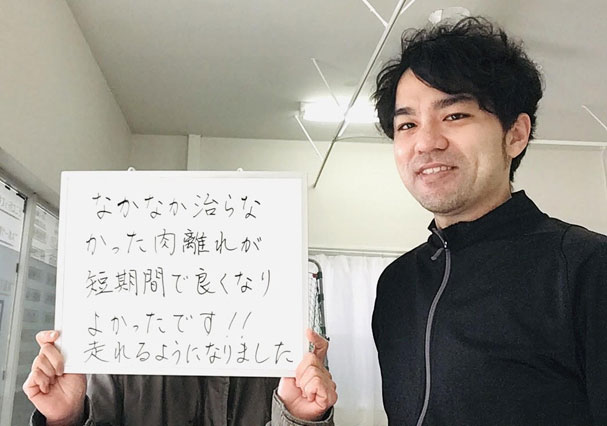 なかなか治らな
かった肉離れが
短期間で良くなり
よかったです!!
走れるようになりました